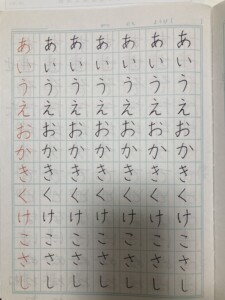 あいうえおかきくけこさし
あいうえおかきくけこさし
あいうえおかきくけこさし
あいうえおかきくけこさし
あいうえおかきくけこさし
あいうえおかきくけこさし
あいうえおかきくけこさし